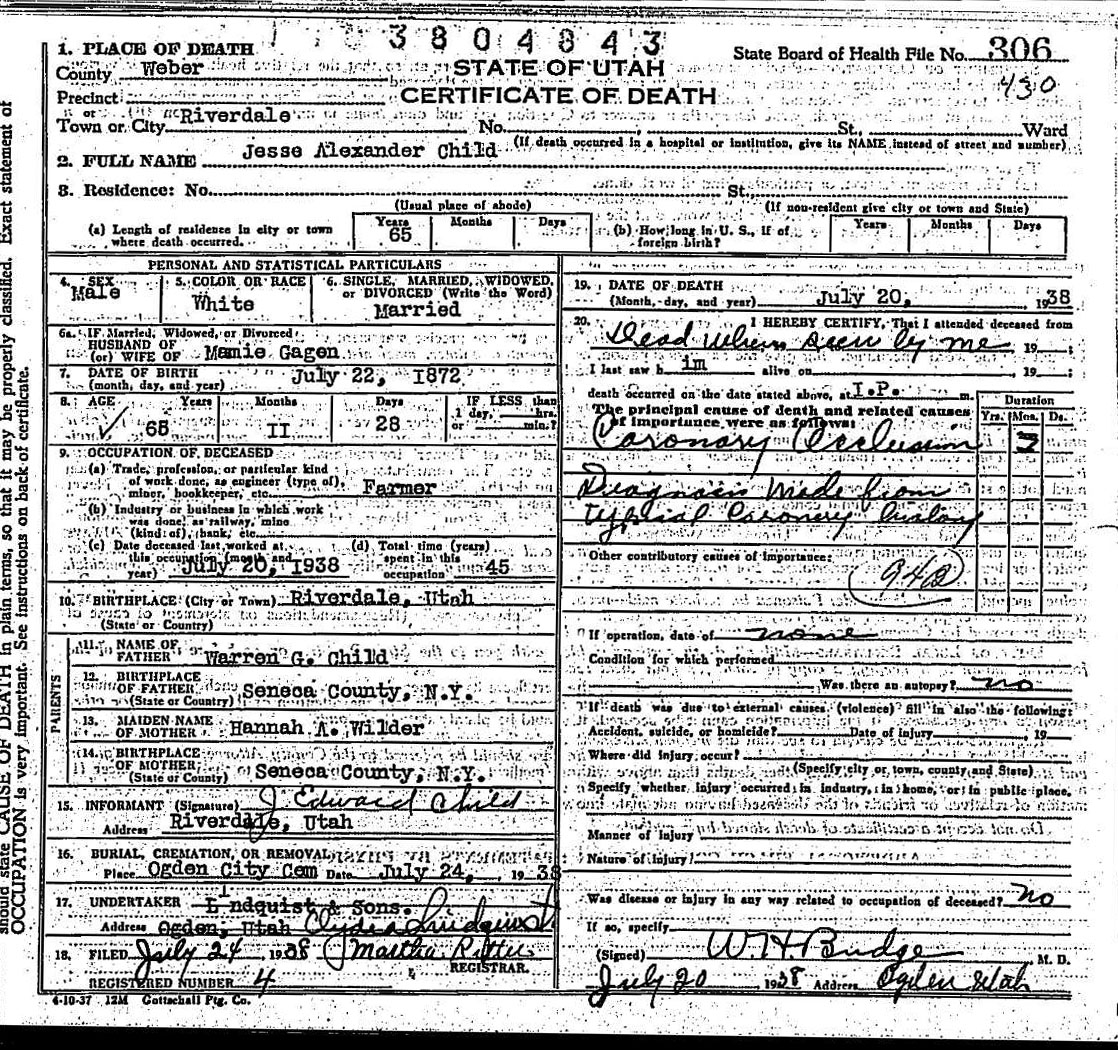 3804843
1. PLACE OF DEATH
State Board of Health File No. 306
County Weber
STATE OF UTAH
430
Precinct
CERTIFICATE OF DEATH
or
Town or City Riverdale No. St., Ward
(If death occurred in a hospital or institution, give its NAME instead of street and number)
2. FULL NAME Jesse Alexander Child
3. Residence: No. St.
(Usual place of abode) (If non-resident give city or town and State)
(a) Length of residence in city or town where death occurred. Years 65 Months Days
(b) How long in U. S., if of foreign birth? Years Months Days
PERSONAL AND STATISTICAL PARTICULARS
4. SEX Male
5. COLOR OR RACE White
6. SINGLE, MARRIED, WIDOWED, or DIVORCED (Write the Word) Married
6a. IF Married, Widowed, or Divorced
HUSBAND OF
(or) WIFE OF Mamie Gagen
7. DATE OF BIRTH
(month, day, and year) July 22, 1872
8. AGE Years 65 Months II Days 28
IF LESS than 1 day, hrs. or min.?
9. OCCUPATION OF DECEASED
(a) Trade, profession, or particular kind
of work done, as engineer (type of),
miner, bookkeeper, etc. Farmer
(b) Industry or business in which work
was done, as railway, mine
(kind of), bank, etc.
(c) Date deceased last worked at
this occupation (month and
year) July 20, 1938
(d) Total time (years)
spent in this
occupation 45
10. BIRTHPLACE (City or Town) Riverdale, Utah
(State or Country)
PARENTS
11. NAME OF
FATHER Warren G. Child
12. BIRTHPLACE
OF FATHER Seneca County, N.Y.
(State or Country)
13. MAIDEN NAME
OF MOTHER Hannah A. Wilder
14. BIRTHPLACE
OF MOTHER
(State or County) Seneca County, N.Y.
15. INFORMANT (Signature) J Edward Child
Address Riverdale, Utah
16. BURIAL, CREMATION, OR REMOVAL
Place Ogden City Cem Date July 24, 1938
17. UNDERTAKER Lindquist & Sons.
Address Ogden, Utah Clyde Lindquist
18. FILED July 24 1938 Martha Ritter
REGISTRAR.
REGISTERED NUMBER 4
4-10-37 12M Gottschall Ptg. Co.
19. DATE OF DEATH
(Month, day, and year) July 20, 1938
20. I HEREBY CERTIFY, That I attended deceased from
Dead when seen by me 19 ;
I last saw him alive on , 19 ;
death occurred on the date stated above, at I.P. m.
The principal cause of death and related causes
of importance were as follows:
Duration
Yrs. Mos. Ds.
Coronary Occlusion
Diagnosis made from
typical Coronary history
Other contributory causes of importance:
94a
If operation, date of none
Condition for which performed
Was there an autopsy? no
If death was due to external causes (violence) fill in also the following:
Accident, suicide, or homicide? Date of injury , 19
Where did injury occur?
(Specify city or town, county and State)
Specify whether injury occurred in industry, in home, or in public place,
Manner of injury
Nature of injury
Was disease or injury in any way related to occupation of deceased? No
If so, specify
(Signed) W. H. Budge M. D.
July 20 1938 Address Ogden Utah
should state CAUSE OF DEATH in plain terms, so that it may be properly classified. Exact statement of
OCCUPATION is very important. See instructions on back of certificate.